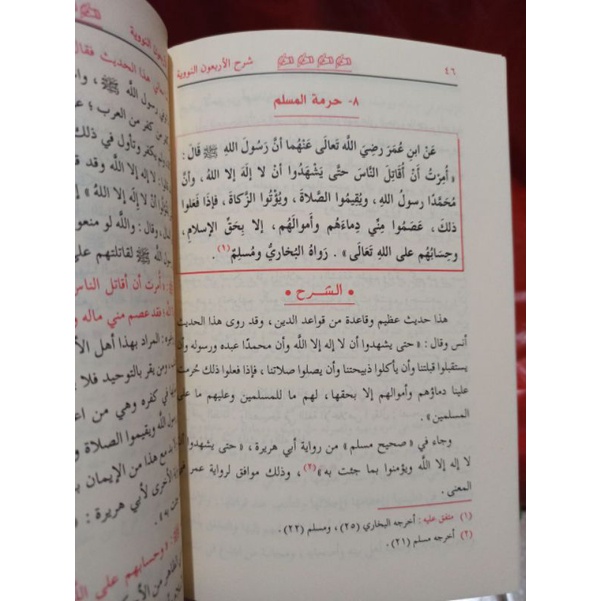 ٤٦
شرح الأربعون النووية
٨- حرمة المسلم
عَنْ ابنِ عُمَرَ رضِيَ اللَّه تَعالَى عَنْهُما أنَّ رَسُولَ اللهِ ﷺ قَالَ :
« أُمِرْتُ أَنْ أُقَاتِلَ النَّاسَ حتَّى يَشْهَدُوا أَنْ لا إلَهَ إلا اللهُ ، وأنَّ
مُحَمَّدًا رسولُ اللهِ ، ويُقِيمُوا الصَّلاةَ ، ويُؤْتُوا الزَّكاةَ ، فإذا فَعلُوا
ذلكَ ، عَصَمُوا مِنِّي دِماءَهُم وأموالَهُم ، إلا بِحَقِّ الإسلامِ،
وحِسَابُهُم على اللهِ تَعَالَى » . رَواهُ البُخاريُّ ومُسلِمٌ(١).
• الشرح •
هذا حديث عظيم وقاعدة من قواعد الدين ، وقد روى هذا الحديث
أنس وقال : « حتى يشهدوا أن لا إله إلا اللَّه وأن محمدًا عبده ورسوله وأن
يستقبلوا قبلتنا وأن يأكلوا ذبيحتنا وأن يصلوا صلاتنا ، فإذا فعلوا ذلك حُرمت
علينا دماؤهم وأموالهم إلا بحقها، لهم ما للمسلمين وعليهم ما على
المسلمين » .
وجاء في « صحيح مسلم » من رواية أبي هريرة ، « حتى يشهدوا أن
لا إله إلا اللَّه ويؤمنوا بما جئت به »(٢)، وذلك موافق لرواية عمر في
المعنى .
(١) متفق عليه : أخرجه البخاري (٢٥) ، ومسلم (٢٢) .
(٢) أخرجه مسلم (٢١) .
هذا الحديث فقال
رسول اللَّه ﷺ ، وا
من كفر من العرب ؛
بكفر وتأول في ذلك
إلا اللَّه وقد ق
أنْ لا إله إلا اللهُ »
، وقال : واللَّه لو منعو
ﷺ لقاتلتهم على
أُمرت أن أقاتل الناس
فقد عصم مني ماله و
المراد بهذا أهل الأ
من يقر بالتوحيد فلا
في كفره وهي من اع
ويقيموا الصلاة و
مع هذا من الإيمان ب
الأخرى لأبي هريرة :
« وحسابهم على الله